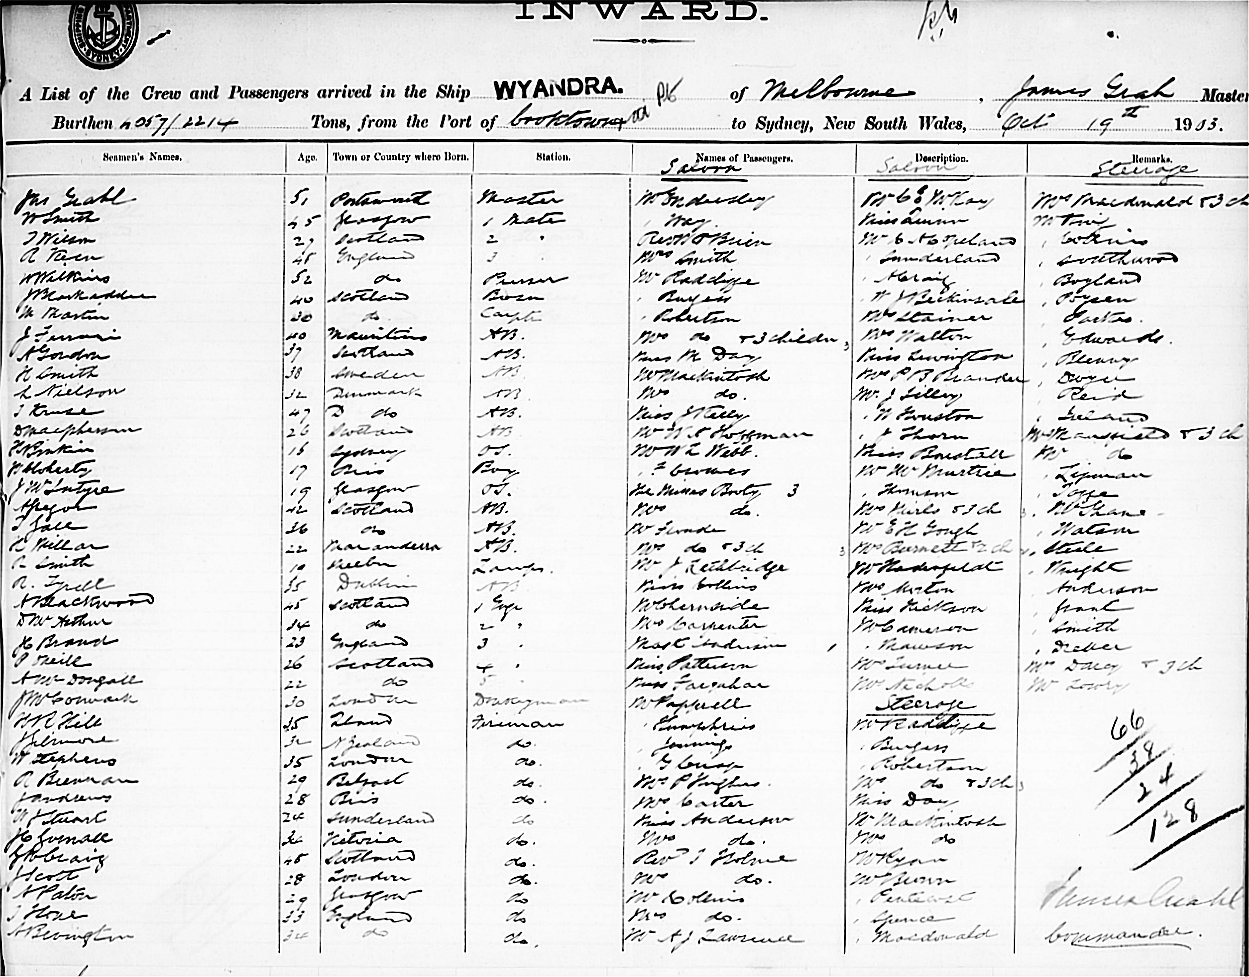 INWARD.
SYDNEY
A List of the Crew and Passengers arrived in the Ship WYANDRA. of Melbourne, James Grahl Master
Burthen 4057/2214 Tons, from the Port of Cooktown to Sydney, New South Wales, Oct 19th 1903.
Seamen's Names. Age. Town or Country where Born. Station. Names of Passengers. Description. Remarks.
Saloon Saloon Steerage
Jas Grahl 51 Portsmouth Master Mr Endersley Mr C E McKay Mrs Macdonald & 3 ch
W Smith 45 Glasgow 1 Mate " Way Miss
J Wilson 27 Scotland 2 " Revd O'Brien Mr C A Copeland " Collins
45 England 3 " Mrs Smith " Sunderland " Southwood
W Wilkins 52 do Purser Mr Radcliffe " A Craig " Boyland
40 Scotland Bosn " Burgess " W J Beckinsale
M Martin 30 do. Carptr " Robertson Mrs Stainer " Parkes.
J Ferrari 40 Mauritius AB. Mrs do & 3 children 3 Mrs Walton " Edwards.
A Gordon 37 Scotland AB. Miss M Day Miss Lewington
H Smith 38 Sweden AB Mr Mackintosh Mrs P B " Dwyer
L Nielson 32 Denmark AB. Mrs do. Mr. J Lilley " Reid
J Kruse 47 D do AB. Miss J Kelly " H Houston " Ireland
D Macpherson 26 Scotland AB Mr W A Hoffman " J Thorn Mr & 3 ch
16 Sydney OS. Mr W L Webb. Miss Mr do
17 Bris Boy " F Mr McMurtrie " Lipman
J McIntyre 19 Glasgow OS. The Misses Booty 3 " Thomson " Joppe
A 42 Scotland AB. Mrs do. Mrs & 3 ch 3
J Gall 36 do AB. Mr Mr E H Gough " Watson
H Millar 22 Narandera AB. Mrs do & 3 ch 3 Mrs Burnett & 2 ch " Steele
Smith 19 Lamps. Mr J Lethbridge " Wright
R. Tyrell 35 Dublin AB Miss Collins Mrs Morton " Anderson
A Blackwood 45 Scotland 1 Engr Mr Chernside Miss Hickson " Grant
D McArthur 34 do 2 " Mrs Carpenter Mr Cameron " Smith
H Brand 23 England 3 " Mast Anderson " Mawson
P Neill 26 Scotland 4 " Miss Patterson Mr Turner Mrs Darcy & 3 ch
A McDougall 22 do 5 " Miss Farquhar Mr Nicholls Mr Lowry
J McCormack 30 London Donkeyman Mr Pappell Steerage
H R Hill 35 Fireman " Humphries Mr Radcliffe 66
Gilmore 32 N Zealand do. " Jennings " Burgess 38
W Stephens 35 London do. " G Crisp " Robertson 24
R Brennan 29 Belfast do. Mr P Hughes. Mrs do & 3 ch 3 128
J Andrews 28 Bris do. Mrs Carter Miss Day
W J Stuart 24 Sunderland do Miss Anderson Mr Mackintosh
H 36 Victoria do. Mrs do. Mrs do
J R Craig 45 Scotland do. Revd J Holme Mr Ryan
J Scott 28 London do. Mrs do. Mr Brown
A Paton 29 Glasgow do Mr Collins " Pentecost James Grahl
J Stone 33 England do Mrs do. " Spence
A Bevington 34 do do. Mr A J Lawrence " Macdonald Commander.